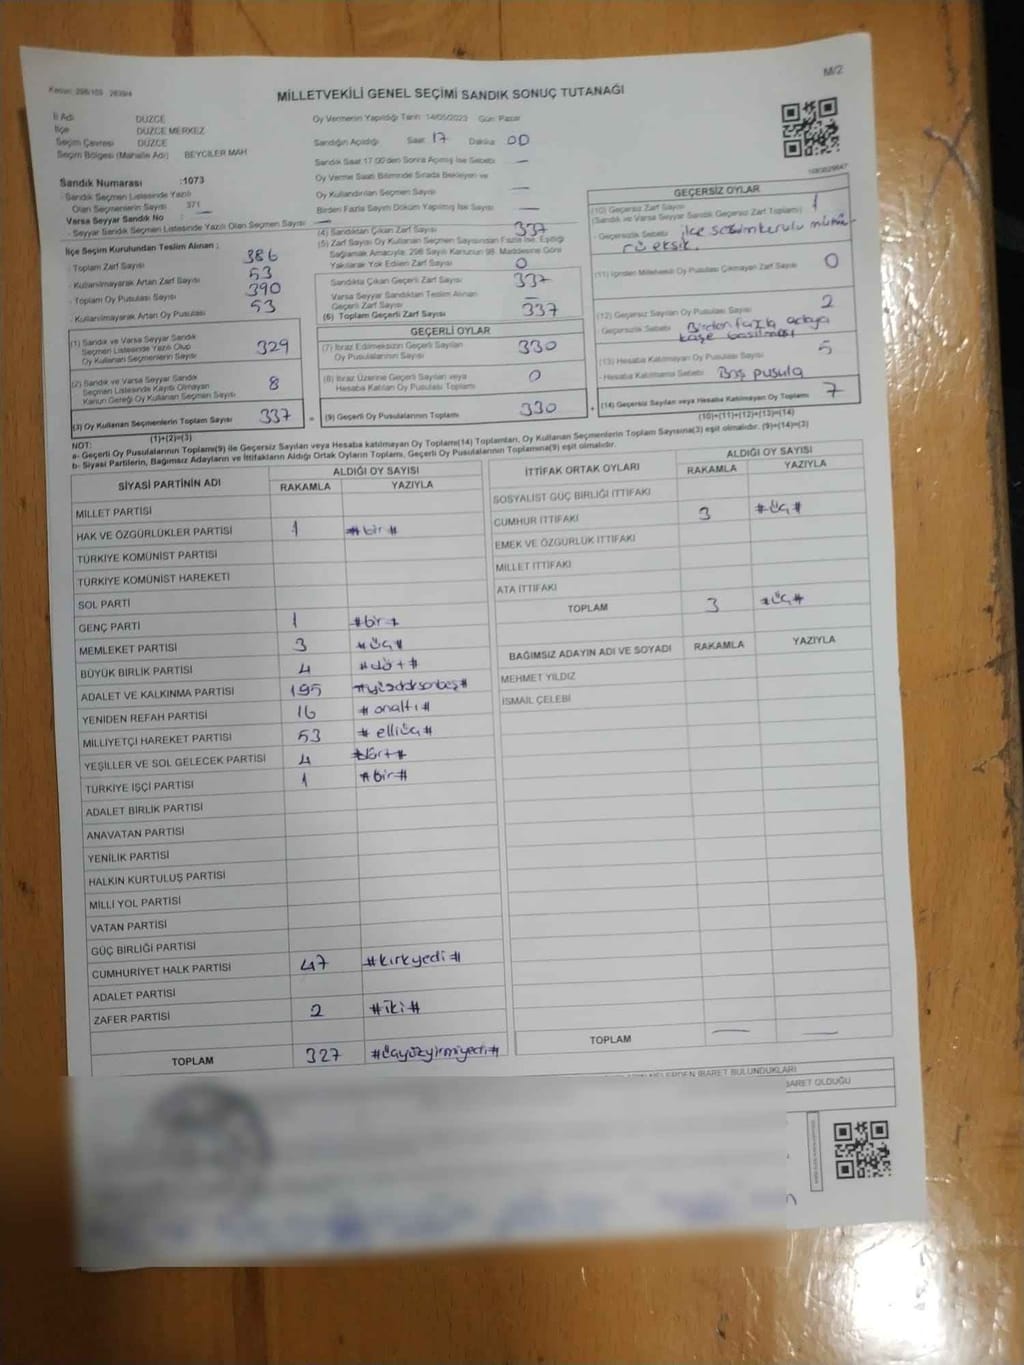 M/2
Kanun: 298/103 2839/4
MİLLETVEKİLİ GENEL SEÇİMİ SANDIK SONUÇ TUTANAĞI
İl Adı DÜZCE
İlçe DÜZCE MERKEZ
Seçim Çevresi DÜZCE
Seçim Bölgesi (Mahalle Adı) BEYCİLER MAH
Sandık Numarası :1073
- Sandık Seçmen Listesinde Yazılı
Olan Seçmenlerin Sayısı 371
Varsa Seyyar Sandık No : —
- Seyyar Sandık Seçmen Listesinde Yazılı Olan Seçmen Sayısı —
İlçe Seçim Kurulundan Teslim Alınan ;
- Toplam Zarf Sayısı 386
- Kullanılmayarak Artan Zarf Sayısı 53
- Toplam Oy Pusulası Sayısı 390
- Kullanılmayarak Artan Oy Pusulası 53
(1) Sandık ve Varsa Seyyar Sandık
Seçmen Listesinde Yazılı Olup
Oy Kullanan Seçmenlerin Sayısı 329
(2) Sandık ve Varsa Seyyar Sandık
Seçmen Listesinde Kayıtlı Olmayan
Kanun Gereği Oy Kullanan Seçmenlerin Sayısı 8
(3) Oy Kullanan Seçmenlerin Toplam Sayısı 337
(1)+(2)=(3)
Oy Vermenin Yapıldığı Tarih: 14/05/2023 Gün: Pazar
Sandığın Açıldığı Saat 17 Dakika 00
Sandık Saat 17.00'den Sonra Açılmış İse Sebebi —
Oy Verme Saati Bitiminde Sırada Bekleyen ve
Oy Kullandırılan Seçmen Sayısı —
Birden Fazla Sayım Döküm Yapılmış İse Sayısı —
(4) Sandıktan Çıkan Zarf Sayısı 337
(5) Zarf Sayısı Oy Kullanan Seçmen Sayısından Fazla İse, Eşitliği
Sağlamak Amacıyla, 298 Sayılı Kanunun 98. Maddesine Göre
Yakılarak Yok Edilen Zarf Sayısı 0
Sandıkta Çıkan Geçerli Zarf Sayısı 337
Varsa Seyyar Sandıktan Teslim Alınan
Geçerli Zarf Sayısı —
(6) Toplam Geçerli Zarf Sayısı 337
GEÇERLİ OYLAR
(7) İtiraz Edilmeksizin Geçerli Sayılan
Oy Pusulalarının Sayısı 330
(8) İtiraz Üzerine Geçerli Sayılan veya
Hesaba Katılan Oy Pusulası Toplamı 0
= (9) Geçerli Oy Pusulalarının Toplamı 330
GEÇERSİZ OYLAR
(10) Geçersiz Zarf Sayısı 1
(Sandık ve Varsa Seyyar Sandık Geçersiz Zarf Toplamı)
- Geçersizlik Sebebi ilçe seçim kurulu mühü-
rü eksik.
(11) İçinden Milletvekili Oy Pusulası Çıkmayan Zarf Sayısı 0
(12) Geçersiz Sayılan Oy Pusulası Sayısı 2
- Geçersizlik Sebebi Birden fazla adaya
kaşe basılması
(13) Hesaba Katılmayan Oy Pusulası Sayısı 5
- Hesaba Katılmama Sebebi Boş pusula
+ (14) Geçersiz Sayılan veya Hesaba Katılmayan Oy Toplamı 7
(10)+(11)+(12)+(13)=(14)
NOT:
a- Geçerli Oy Pusulalarının Toplamı(9) ile Geçersiz Sayılan veya Hesaba katılmayan Oy Toplamı(14) Toplamları, Oy Kullanan Seçmenlerin Toplam Sayısına(3) eşit olmalıdır. (9)+(14)=(3)
b- Siyasi Partilerin, Bağımsız Adayların ve İttifakların Aldığı Ortak Oyların Toplamı, Geçerli Oy Pusulalarının Toplamına(9) eşit olmalıdır.
SİYASİ PARTİNİN ADI ALDIĞI OY SAYISI
RAKAMLA YAZIYLA
MİLLET PARTİSİ
HAK VE ÖZGÜRLÜKLER PARTİSİ 1 #bir#
TÜRKİYE KOMÜNİST PARTİSİ
TÜRKİYE KOMÜNİST HAREKETİ
SOL PARTİ
GENÇ PARTİ 1 #bir#
MEMLEKET PARTİSİ 3 #üç#
BÜYÜK BİRLİK PARTİSİ 4 #dört#
ADALET VE KALKINMA PARTİSİ 195 #yüzdoksanbeş#
YENİDEN REFAH PARTİSİ 16 #onaltı#
MİLLİYETÇİ HAREKET PARTİSİ 53 #elliüç#
YEŞİLLER VE SOL GELECEK PARTİSİ 4 #dört#
TÜRKİYE İŞÇİ PARTİSİ 1 #bir#
ADALET BİRLİK PARTİSİ
ANAVATAN PARTİSİ
YENİLİK PARTİSİ
HALKIN KURTULUŞ PARTİSİ
MİLLİ YOL PARTİSİ
VATAN PARTİSİ
GÜÇ BİRLİĞİ PARTİSİ
CUMHURİYET HALK PARTİSİ 47 #kırkyedi#
ADALET PARTİSİ
ZAFER PARTİSİ 2 #iki#
TOPLAM 327 #üçyüzyirmiyedi#
İTTİFAK ORTAK OYLARI ALDIĞI OY SAYISI
RAKAMLA YAZIYLA
SOSYALİST GÜÇ BİRLİĞİ İTTİFAKI
CUMHUR İTTİFAKI 3 #üç#
EMEK VE ÖZGÜRLÜK İTTİFAKI
MİLLET İTTİFAKI
ATA İTTİFAKI
TOPLAM 3 #üç#
BAĞIMSIZ ADAYIN ADI VE SOYADI RAKAMLA YAZIYLA
MEHMET YILDIZ
İSMAİL ÇELEBİ
TOPLAM — —
İBARET BULUNDUKLARI
İBARET OLDUĞU